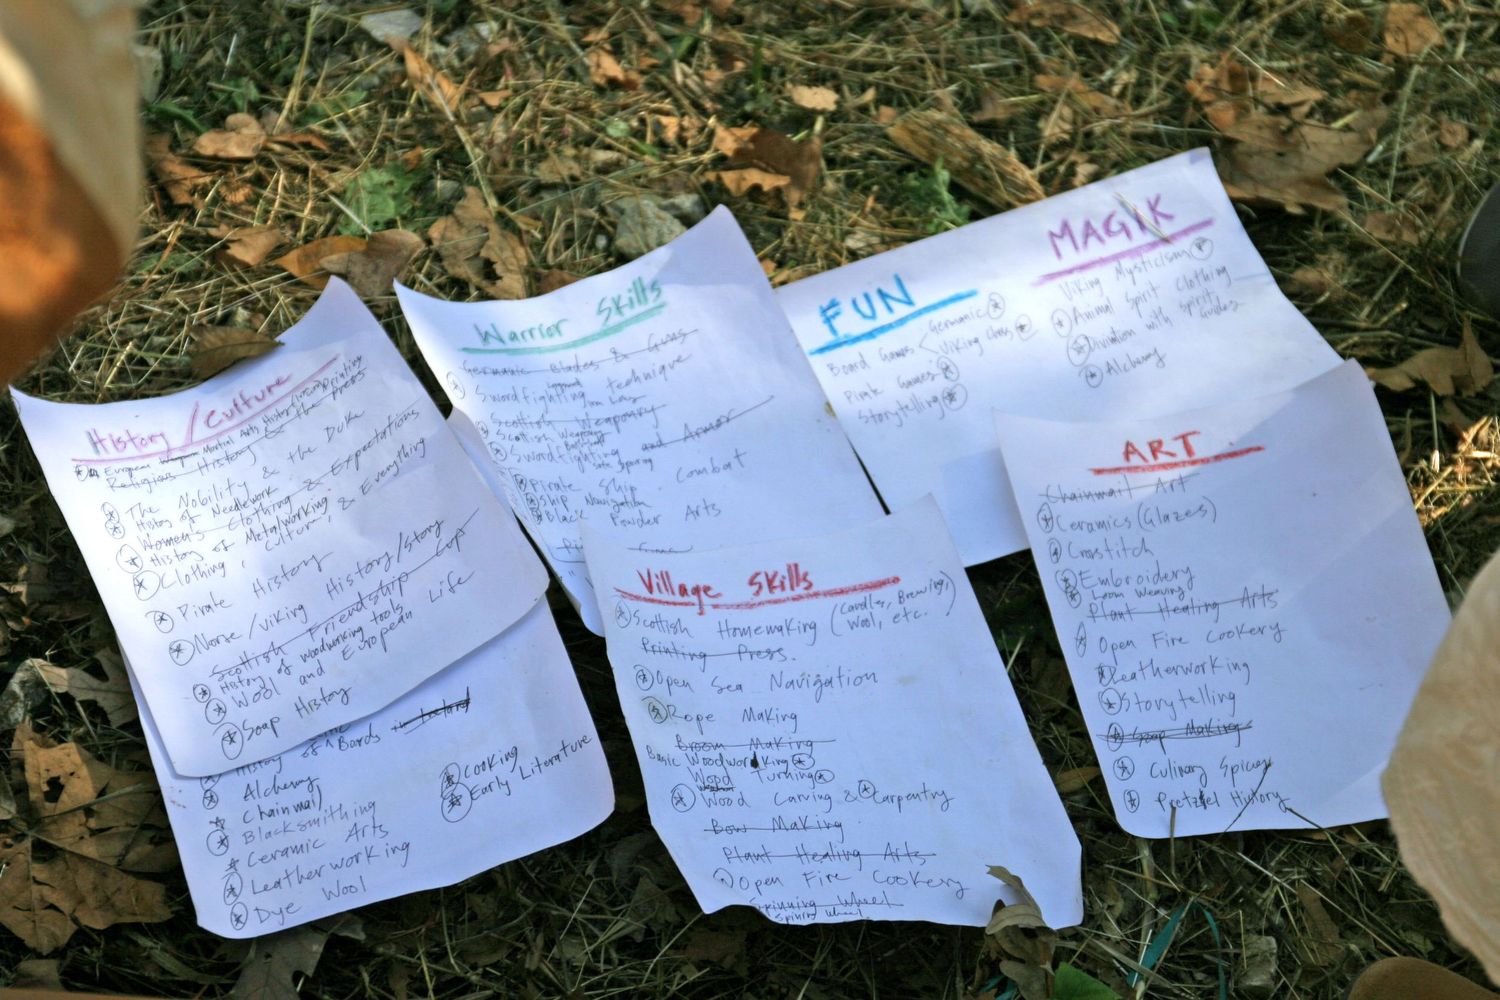 History / Culture
European Martial Arts History
Printing
Religious History & the Press
The Nobility & the Duke
History of Needlework
Women's Clothing & Expectations
History of Metalworking
Clothing, Culture, & Everything
Pirate History
Norse/Viking History/Story
Scottish Friendship Cup
History of woodworking tools
Wool and European Life
Soap History
History of Bards in Ireland
Alchemy
Chainmail
Blacksmithing
Ceramic Arts
Leatherworking
Dye Wool
Cooking
Early Literature
Warrior Skills
Germanic Blades & Guns
Swordfighting technique
Scottish Weaponry
Scottish Weaponry
Swordfighting and Armor
safe sparring
Pirate Ship Combat
Ship Navigation
Black Powder Arts
FUN
Board Games < Germanic
Viking Chess
Pirate Games
Storytelling
MAGIK
Viking Mysticism
Animal Spirit Clothing
Divination with Spirit Guides
Alchemy
Village Skills
Scottish Homemaking (Candles, Brewing, Wool, etc.)
Printing Press.
Open Sea Navigation
Rope Making
Broom Making
Basic Woodworking
Wood Turning
Wood Carving & Carpentry
Bow Making
Plant Healing Arts
Open Fire Cookery
Spinning Wheel
Spinning Wheel
ART
Chainmail Art
Ceramics (Glazes)
Crosstitch
Embroidery
Loom Weaving
Plant Healing Arts
Open Fire Cookery
Leatherworking
Storytelling
Soap Making
Culinary Spices
Pretzel History